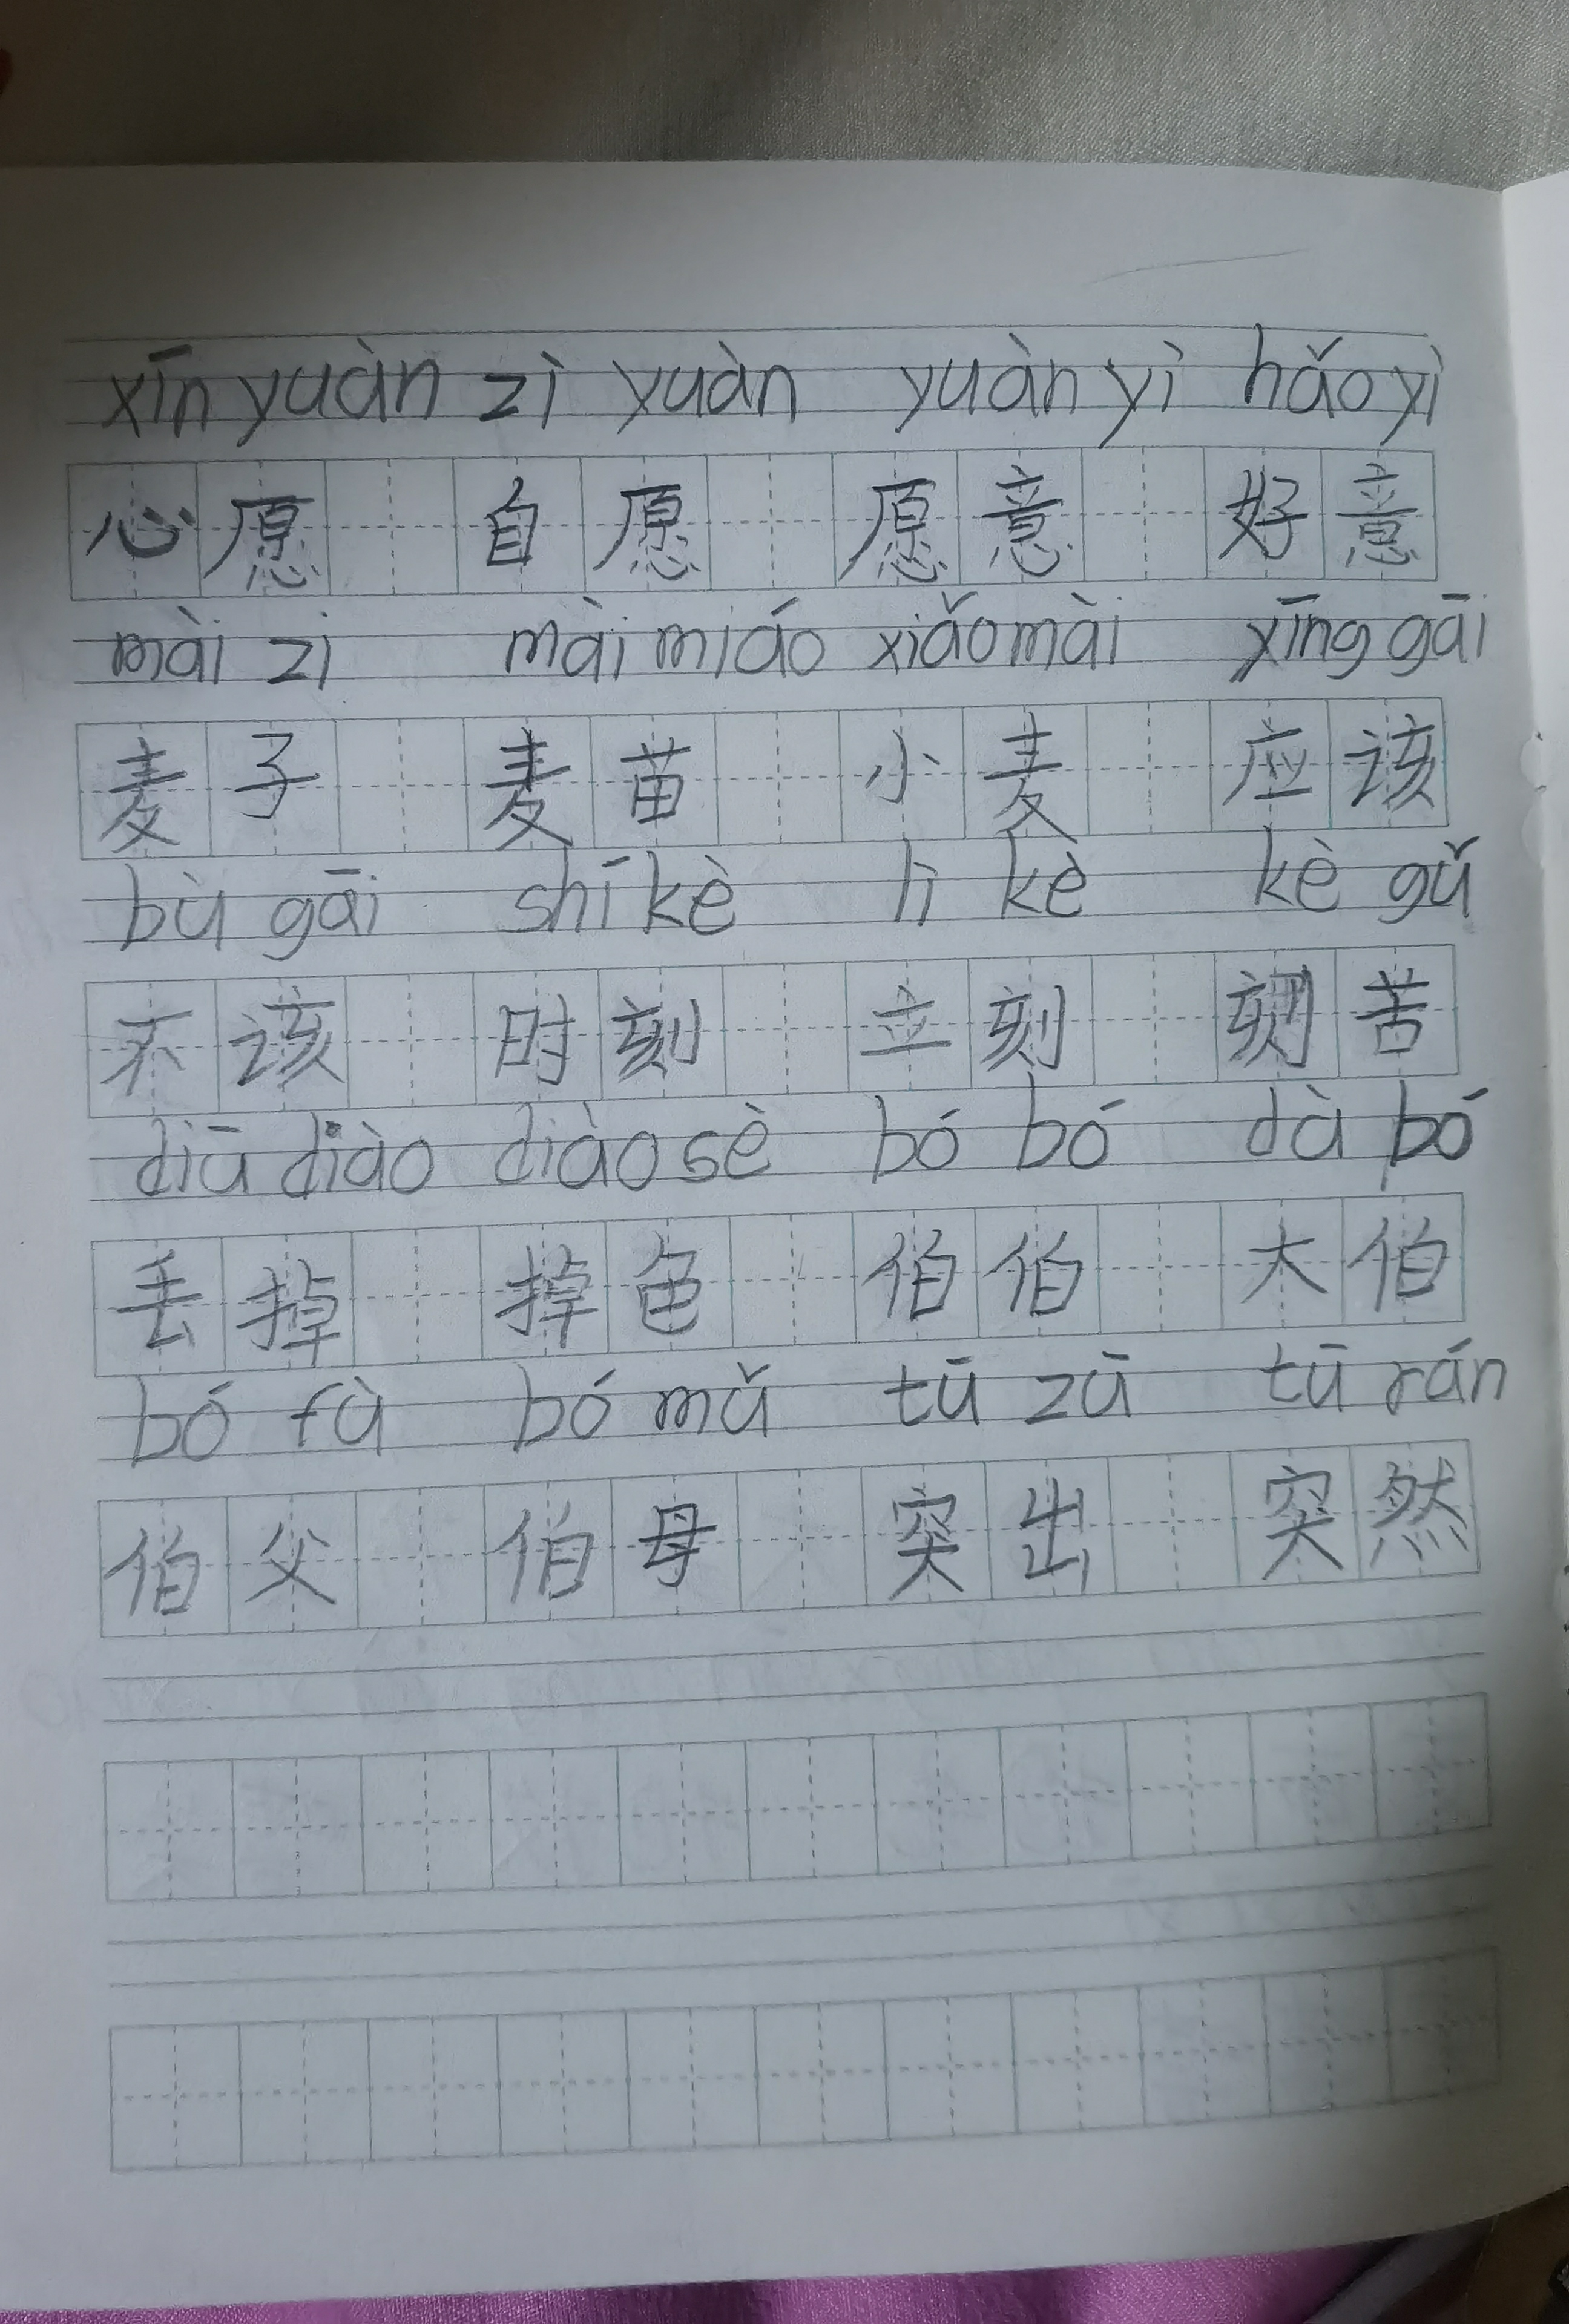 xīn yuàn zì yuàn yuàn yì hǎo yì
心愿 自愿 愿意 好意
mài zi mài miáo xiǎo mài yīng gāi
麦子 麦苗 小麦 应该
bù gāi shí kè lì kè kè gǔ
不该 时刻 立刻 刻苦
diū diào diào sè bó bó dà bó
丢掉 掉色 伯伯 大伯
bó fù bó mǔ tū zū tū rán
伯父 伯母 突出 突然